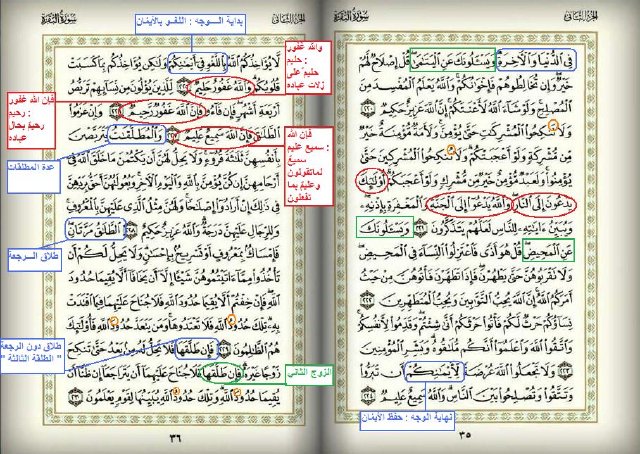 الجزء الثاني
سورة البقرة
فِي الدُّنْيَا وَالْآخِرَةِ وَيَسْـَٔلُونَكَ عَنِ الْيَتَامَىٰ قُلْ إِصْلَاحٌ لَّهُمْ
خَيْرٌ وَإِن تُخَالِطُوهُمْ فَإِخْوَانُكُمْ وَاللَّهُ يَعْلَمُ الْمُفْسِدَ مِنَ
الْمُصْلِحِ وَلَوْ شَاءَ اللَّهُ لَأَعْنَتَكُمْ إِنَّ اللَّهَ عَزِيزٌ حَكِيمٌ ٢٢٠
وَلَا تَنكِحُوا الْمُشْرِكَاتِ حَتَّىٰ يُؤْمِنَّ وَلَأَمَةٌ مُّؤْمِنَةٌ خَيْرٌ
مِّن مُّشْرِكَةٍ وَلَوْ أَعْجَبَتْكُمْ وَلَا تُنكِحُوا الْمُشْرِكِينَ حَتَّىٰ
يُؤْمِنُوا وَلَعَبْدٌ مُّؤْمِنٌ خَيْرٌ مِّن مُّشْرِكٍ وَلَوْ أَعْجَبَكُمْ أُولَٰئِكَ
يَدْعُونَ إِلَى النَّارِ وَاللَّهُ يَدْعُو إِلَى الْجَنَّةِ وَالْمَغْفِرَةِ بِإِذْنِهِ
وَيُبَيِّنُ آيَاتِهِ لِلنَّاسِ لَعَلَّهُمْ يَتَذَكَّرُونَ ٢٢١ وَيَسْـَٔلُونَكَ
عَنِ الْمَحِيضِ قُلْ هُوَ أَذًى فَاعْتَزِلُوا النِّسَاءَ فِي الْمَحِيضِ
وَلَا تَقْرَبُوهُنَّ حَتَّىٰ يَطْهُرْنَ فَإِذَا تَطَهَّرْنَ فَأْتُوهُنَّ مِنْ حَيْثُ
أَمَرَكُمُ اللَّهُ إِنَّ اللَّهَ يُحِبُّ التَّوَّابِينَ وَيُحِبُّ الْمُتَطَهِّرِينَ ٢٢٢
نِسَاؤُكُمْ حَرْثٌ لَّكُمْ فَأْتُوا حَرْثَكُمْ أَنَّىٰ شِئْتُمْ وَقَدِّمُوا لِأَنفُسِكُمْ
وَاتَّقُوا اللَّهَ وَاعْلَمُوا أَنَّكُم مُّلَاقُوهُ وَبَشِّرِ الْمُؤْمِنِينَ ٢٢٣
وَلَا تَجْعَلُوا اللَّهَ عُرْضَةً لِّأَيْمَانِكُمْ أَن تَبَرُّوا
وَتَتَّقُوا وَتُصْلِحُوا بَيْنَ النَّاسِ وَاللَّهُ سَمِيعٌ عَلِيمٌ ٢٢٤
نهاية الوجه : حفظ الأيمان
٣٥
الجزء الثاني
سورة البقرة
بداية الـوجه : اللغـو بالأيمان
لَّا يُؤَاخِذُكُمُ اللَّهُ بِاللَّغْوِ فِي أَيْمَانِكُمْ وَلَٰكِن يُؤَاخِذُكُم بِمَا كَسَبَتْ
قُلُوبُكُمْ وَاللَّهُ غَفُورٌ حَلِيمٌ ٢٢٥ لِّلَّذِينَ يُؤْلُونَ مِن نِّسَائِهِمْ تَرَبُّصُ
أَرْبَعَةِ أَشْهُرٍ فَإِن فَاءُوا فَإِنَّ اللَّهَ غَفُورٌ رَّحِيمٌ ٢٢٦ وَإِنْ عَزَمُوا
الطَّلَاقَ فَإِنَّ اللَّهَ سَمِيعٌ عَلِيمٌ ٢٢٧ وَالْمُطَلَّقَاتُ يَتَرَبَّصْنَ
بِأَنفُسِهِنَّ ثَلَاثَةَ قُرُوءٍ وَلَا يَحِلُّ لَهُنَّ أَن يَكْتُمْنَ مَا خَلَقَ اللَّهُ فِي
أَرْحَامِهِنَّ إِن كُنَّ يُؤْمِنَّ بِاللَّهِ وَالْيَوْمِ الْآخِرِ وَبُعُولَتُهُنَّ أَحَقُّ بِرَدِّهِنَّ
فِي ذَٰلِكَ إِنْ أَرَادُوا إِصْلَاحًا وَلَهُنَّ مِثْلُ الَّذِي عَلَيْهِنَّ بِالْمَعْرُوفِ
وَلِلرِّجَالِ عَلَيْهِنَّ دَرَجَةٌ وَاللَّهُ عَزِيزٌ حَكِيمٌ ٢٢٨ الطَّلَاقُ مَرَّتَانِ
فَإِمْسَاكٌ بِمَعْرُوفٍ أَوْ تَسْرِيحٌ بِإِحْسَانٍ وَلَا يَحِلُّ لَكُمْ أَن
تَأْخُذُوا مِمَّا آتَيْتُمُوهُنَّ شَيْئًا إِلَّا أَن يَخَافَا أَلَّا يُقِيمَا حُدُودَ
اللَّهِ فَإِنْ خِفْتُمْ أَلَّا يُقِيمَا حُدُودَ اللَّهِ فَلَا جُنَاحَ عَلَيْهِمَا فِيمَا افْتَدَتْ
بِهِ تِلْكَ حُدُودُ اللَّهِ فَلَا تَعْتَدُوهَا وَمَن يَتَعَدَّ حُدُودَ اللَّهِ فَأُولَٰئِكَ
هُمُ الظَّالِمُونَ ٢٢٩ فَإِن طَلَّقَهَا فَلَا تَحِلُّ لَهُ مِن بَعْدُ حَتَّىٰ تَنكِحَ
زَوْجًا غَيْرَهُ فَإِن طَلَّقَهَا فَلَا جُنَاحَ عَلَيْهِمَا أَن يَتَرَاجَعَا إِن ظَنَّا أَن
يُقِيمَا حُدُودَ اللَّهِ وَتِلْكَ حُدُودُ اللَّهِ يُبَيِّنُهَا لِقَوْمٍ يَعْلَمُونَ ٢٣٠
٣٦
والله غفور
حليم :
حليم على
زلات عباده
فإن الله
سميع عليم :
سميعٌ
لماتقولون
وعليمٌ بما
تفعلون
الزوج الثاني
فإن الله غفور
رحيم :
رحيمٌ بحال
عباده
عدة المطلقات
طلاق الـرجعة
طلاق دون الرجعة
" الطلقة الثالثة "